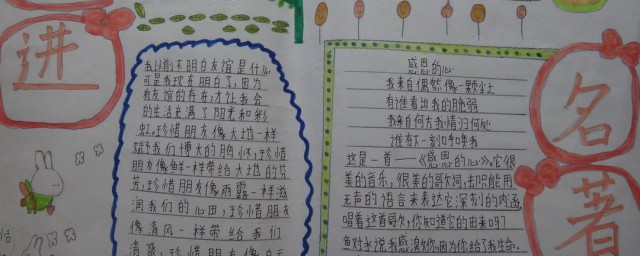 进
我以前不明白友谊是什么
可是我现在明白了,因为
有友谊的存在,才让我会
的生活充满了阳光和彩
虹,珍惜朋友像大地一样
赋予我们博大的胸怀,珍惜
朋友像鲜一样带给大地的芬
芳,珍惜朋友像雨露一样滋
润我们的心田,珍惜朋友
像清风一样带给我们
清爽,珍惜朋友像白
感恩的心
我来自偶然像一颗尘土
有谁看出我的脆弱
我来自何方我情归何处
谁在下一刻呼唤我
这是一首——《感恩的心》。它很
美的音乐,很美的歌词,却只能用
无声的语言来表达它深刻的内涵
唱着这首歌,你知道它的由来吗?
鱼对水说我感激你,因为你给了我生命。
名
著